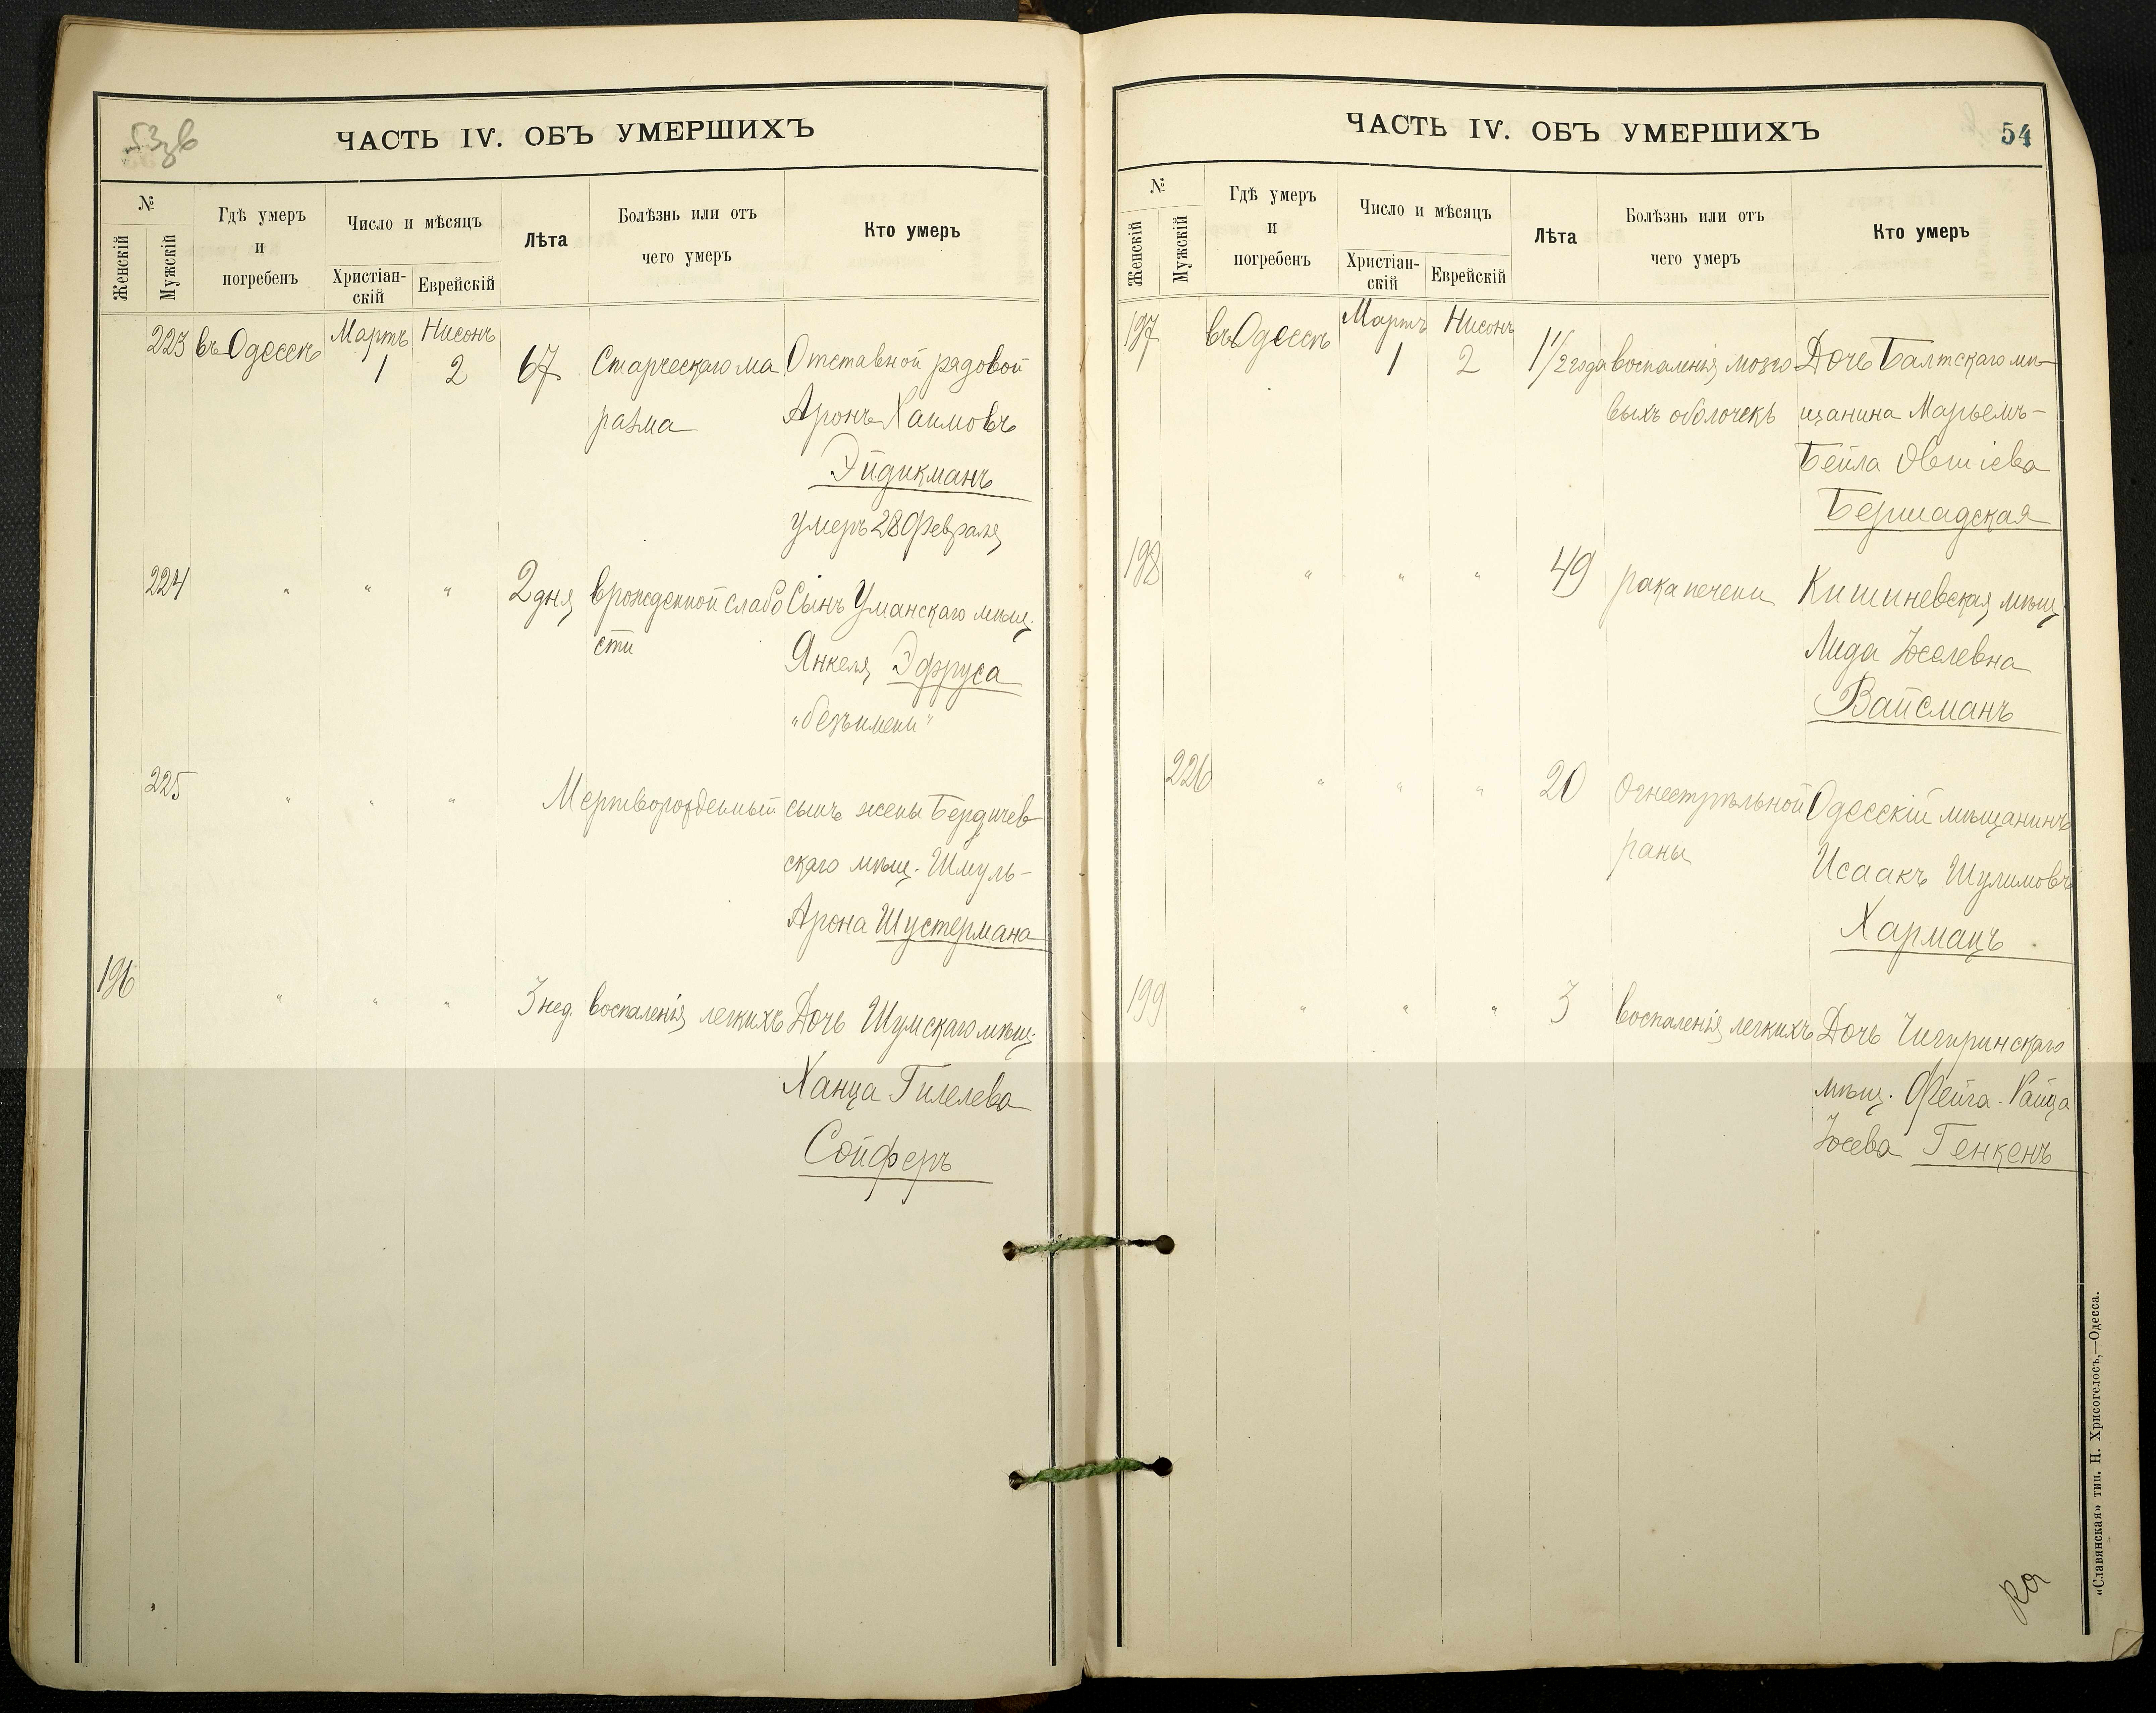 53зв
ЧАСТЬ IV. ОБЪ УМЕРШИХЪ
№
Женскій
Мужскій
Гдѣ умеръ
и
погребенъ
Число и мѣсяцъ
Христіан-
скій
Еврейскій
Лѣта
Болѣзнь или отъ
чего умеръ
Кто умеръ
223 въ Одессѣ Мартъ 1 Нисонъ 2 67 Старческаго ма Отставной рядовой
разма Аронъ Хаимовъ
Эйдикманъ
умеръ 28 Февраля
224 " " " 2 дня врожденной слабо Сынъ Уманскаго мѣщ.
сти Янкеля Эфруса
"безъ имени"
225 " " " Мертворожденный сынъ жены Бердичев
скаго мѣщ. Шмуль-
Арона Шустермана
196 " " " 3 нед. воспаленія легкихъ Дочь Шумскаго мѣщ.
Ханца Гилелева
Сойферъ
ЧАСТЬ IV. ОБЪ УМЕРШИХЪ
54
№
Женскій
Мужскій
Гдѣ умеръ
и
погребенъ
Число и мѣсяцъ
Христіан-
скій
Еврейскій
Лѣта
Болѣзнь или отъ
чего умеръ
Кто умеръ
197 въ Одессѣ Мартъ 1 Нисонъ 2 1 1/2 года воспаленія мозго Дочь Балтскаго мѣ-
выхъ оболочекъ щанина Марьемъ-
Бейла Овшіева
Бершадская
198 " " " 49 рака печени Кишиневская мѣщ.
Лида Іоселевна
Вайсманъ
226 " " " 20 Огнестрѣльной Одесскій мѣщанинъ
раны Исаакъ Шулимовъ
Хармацъ
199 " " " 3 воспаленія легкихъ Дочь Чигиринскаго
мѣщ. Фейга-Райца
Іосева Генкенъ
«Славянская» тип. Н. Хрисогелосъ,—Одесса.